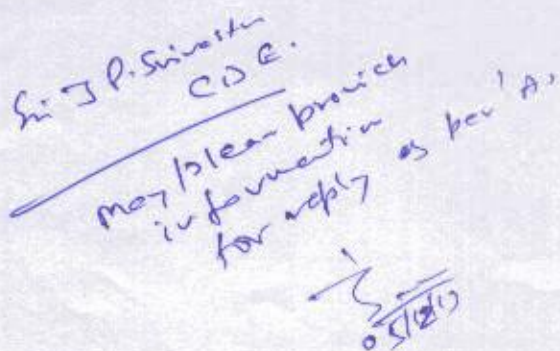 Sri J P. Srivastva
CDE.
may please provide
information
for reply as per 'A'
05/12/13